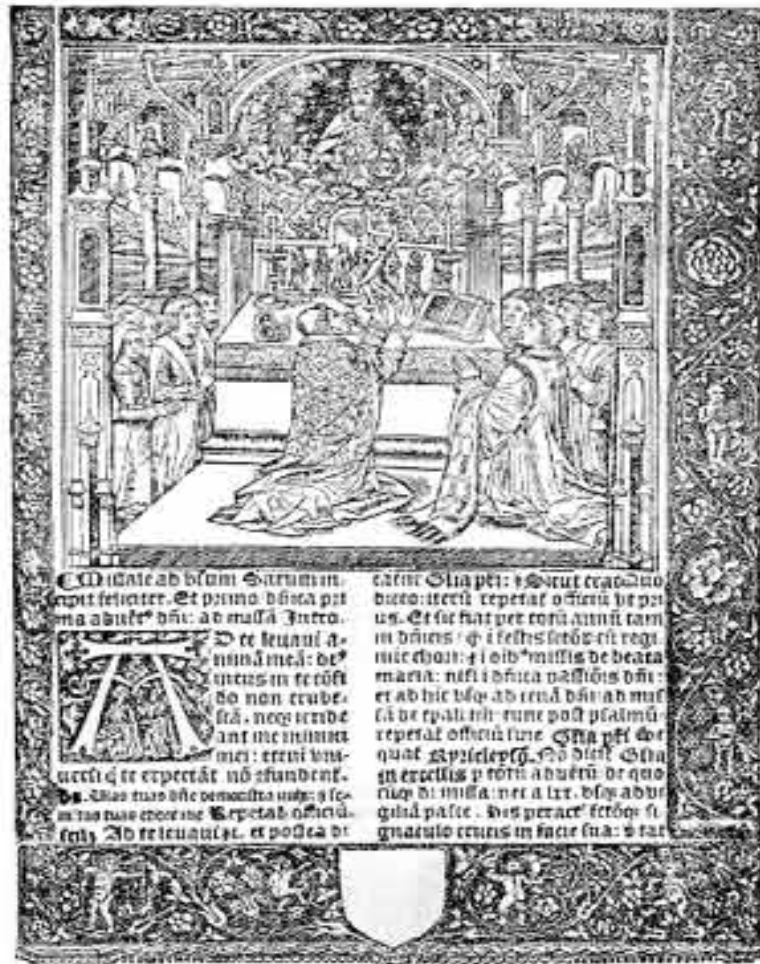 Missale ad vsum Sarum in⸗
cipit feliciter. Et primo dñica pri
ma aduẽt⁹ dñi: ad missã Intro.
AD te leuaui a⸗
nimã meã: de⁹
meus in te cõfi
do non erube⸗
scã. neqꝫ irride
ant me inimici
mei: eteni vni⸗
uersi q̃ te expectãt nõ cfundent̃
Uias tuas dñe demonstra mihi: ⁊ se⸗
mitas tuas edoce me Repetat̃ officiũ
Ad te leuaui ⁊c. et postea di
catur Glia p̃ri: ⁊ Sicut erat
iterũ repetat̃ officiũ vt pri
us. Et sic fiat per totũ annũ tam
in dñicis: q̃ i festis sctõꝝ cũ regi
mie chori: ⁊ i oĩb⁹ missis de beata
maria: nisi i dñica passiõis dñi:
et ab hic vsqꝫ ad cenã dñi: ad mis
tunc post psalmũ
repetat̃ officiũ sine Glia p̃ri
quat̃ Kyrieleysõ. Nõ dicit̃ Glia
in excelsis p totũ aduẽtũ de quo
cũqꝫ di missa: nec a lxx. vsqꝫ ad vi
giliã pasce. His peract̃ sctõqꝫ si
gnaculo crucis in facie sua: